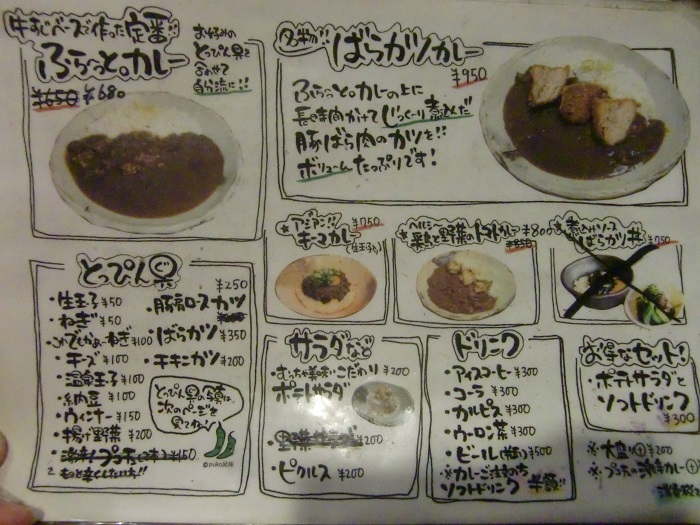 牛すじベースで作った定番!!
ふらっと。カレー
¥650 ¥680
お好みの
とっぴん具を
合わせて
自分流に!!
名物!! ばらカツカレー
¥950
ふらっと。カレーの上に
長時間かけてじっくり煮込んだ
豚ばら肉のカツを!!
ボリュームたっぷりです!
★アジアン!! ¥750
キーマカレー
(生玉子入)
★ヘルシー
鶏と野菜のトマトカレー ¥800
¥850
★煮込みソース
ばらカツ丼 ¥750
とっぴん具
・生玉子 ¥50
・ねぎ ¥50
¥100
・チーズ ¥100
・温泉玉子 ¥100
・納豆 ¥100
・ウィンナー ¥150
・揚げ野菜 ¥200
¥150
もっと辛くしたい方!!
¥250
・豚肩ロースカツ
・ばらカツ ¥350
・チキンカツ ¥200
とっぴん具の写真は、
次のページを
見てね!
©puko民族
サラダなど
・むっちゃ美味・こだわり ¥200
ポテトサラダ
・野菜サラダ ¥200
・ピクルス ¥200
ドリンク
・アイスコーヒー ¥300
・コーラ ¥300
・カルピス ¥300
・ウーロン茶 ¥300
・ビール ¥500
※カレーご注文の方
ソフトドリンク 半額!!
お得なセット!
・ポテトサラダと
ソフトドリンク
¥300
※大盛り ⊕ ¥200